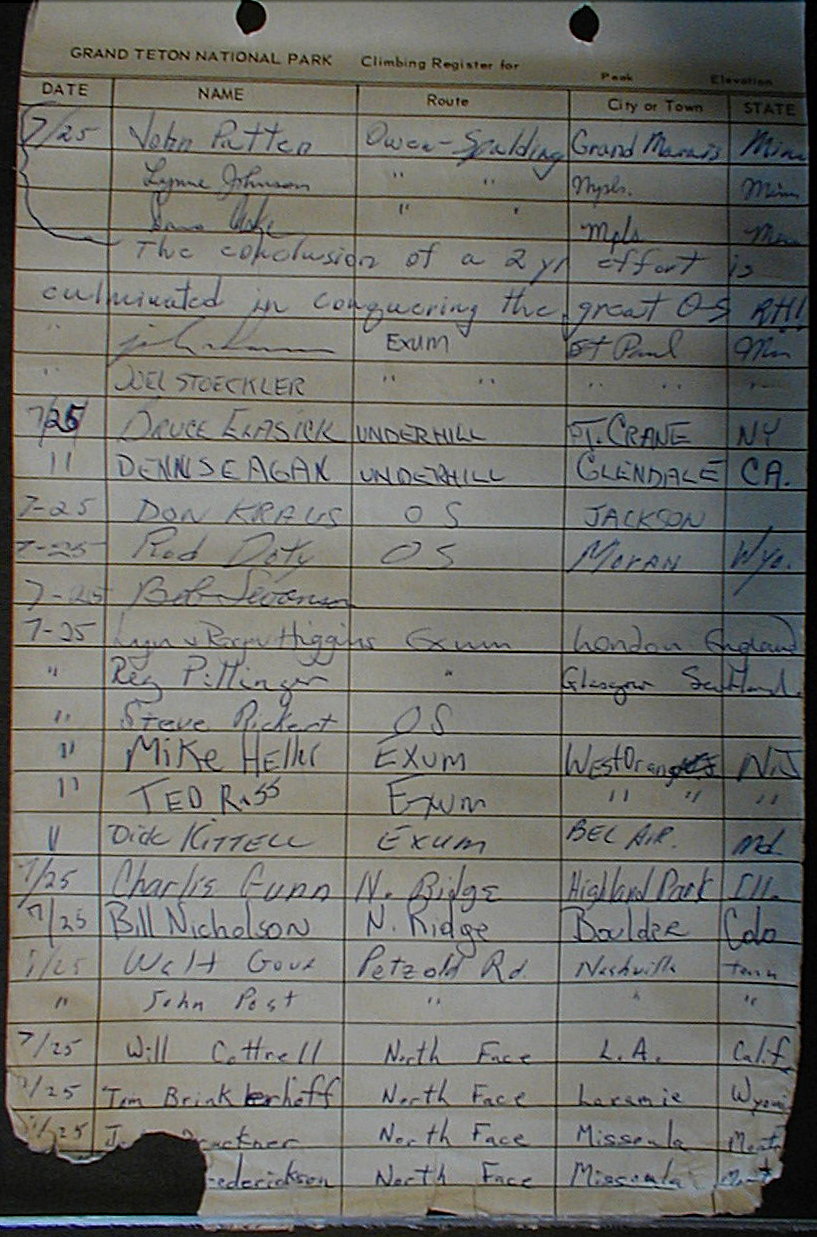 GRAND TETON NATIONAL PARK Climbing Register for
Peak Elevation
DATE NAME Route City or Town STATE
7/25 John Patten Owen-Spalding Grand Marais Minn
Lynne Johnson " " Mpls. Minn
" " Mpls Minn
The conclusion of a 2 yr effort is
culminated in conquering the great O-S RH!
" Exum St Paul Mn
" JOEL STOECKLER " " " " "
7/25 BRUCE UNDERHILL PT. CRANE NY
11 DENNIS EAGAN UNDERHILL GLENDALE CA.
7-25 DON KRAUS OS JACKSON
7-25 Rod Doty OS MORAN Wyo.
7-25 Bob
7-25 Lyn & Roger Higgins Exum London England
" Reg Pillinger " Glasgow Scotland.
" Steve Rickert OS
" MIKE HELLER EXUM West Orange NJ
" TED Exum " " "
" Dick KITTELL EXUM BEL AIR. Md.
7/25 Charlis Gunn N. Ridge Highland Park Ill.
7/25 Bill Nicholson N. Ridge Boulder Colo
7/25 Walt Petzold Rd. Nashville Tenn
" John Post " " "
7/25 Will Cottrell North Face L.A. Calif
7/25 Tom Brinkerhoff North Face Laramie Wyoming
7/25 North Face Missoula Mont
ederickson North Face Missoula Mont